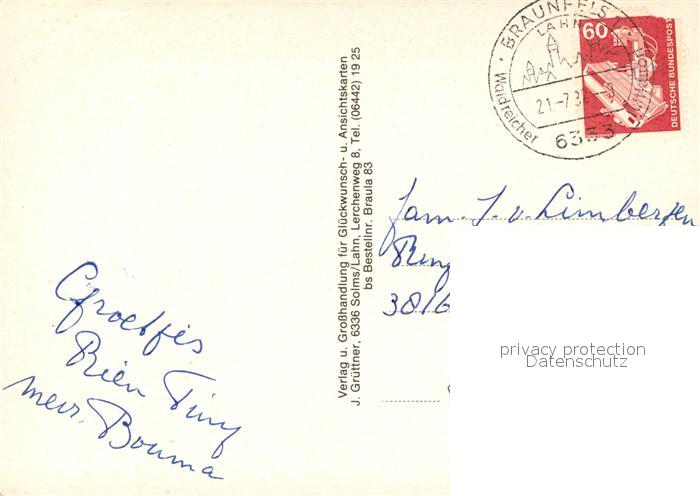 Groetjes
Rien Tiny
mevr. Bouma
Verlag u. Großhandlung für Glückwunsch- u. Ansichtskarten
J. Grüttner, 6336 Solms/Lahn, Lerchenweg 8, Tel. (06442) 19 25
bs Bestellnr. Braula 83
BRAUNFELS
LAHN
21.-7.8
6333
Waldreicher
60
DEUTSCHE BUNDESPOST
Fam. J. v. Limbergen
Ring
3816
privacy protection
Datenschutz